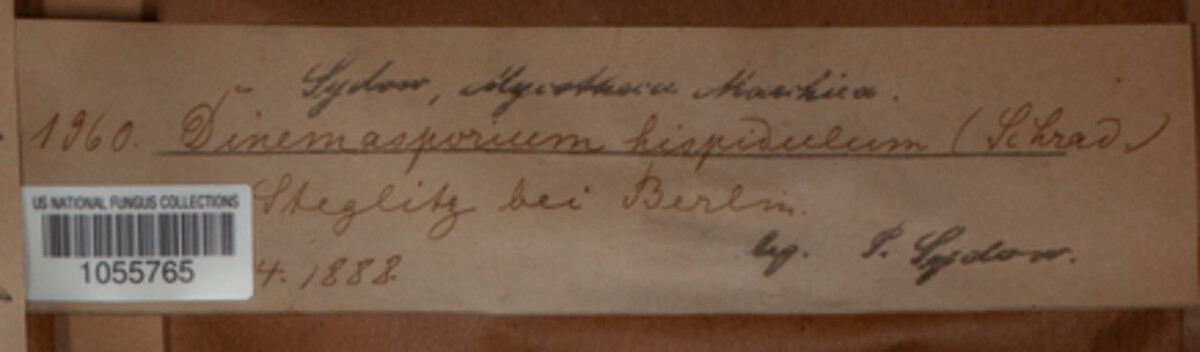 Sydow, Mycotheca Marchica.
1960. Dinemasporium hispidulum (Schrad.)
Steglitz bei Berlin.
4. 1888.
leg. P. Sydow.
US NATIONAL FUNGUS COLLECTIONS
1055765